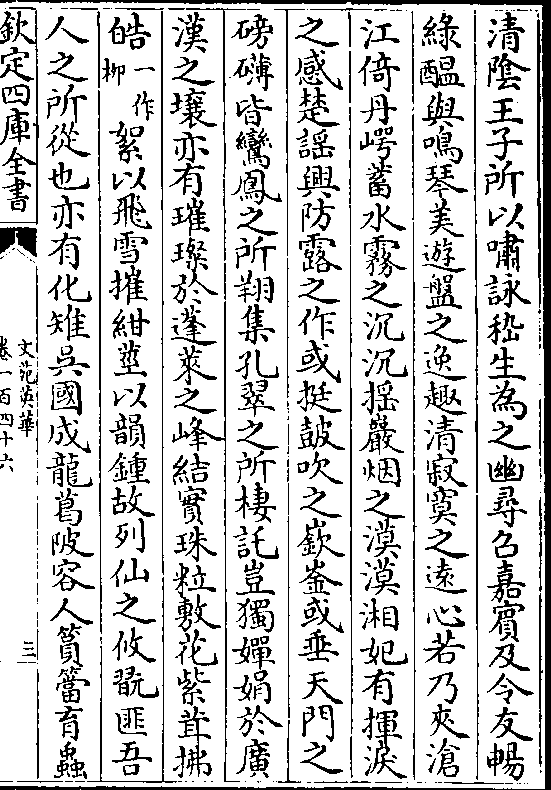 清陰王子所以嘯詠嵇生為之幽尋召嘉賓及令友暢
綠醖與鳴琴美遊盤之逸趣清寂寞之遠心若乃夾滄
江倚丹崿蓄水霧之沉沉揺巖烟之漠漠湘妃有揮淚
之感楚謡興防露之作或挺皷吹之嶔崟或垂天門之
磅礴皆鸞鳳之所翔集孔翠之所棲託豈獨嬋娟於廣
漢之壤亦有璀璨於蓬萊之峰結實珠粒敷花紫茸拂
皓一作栁絮以飛雪摧紺莖以韻鍾故列仙之攸翫匪吾
人之所從也亦有化雉吳國成龍葛陂容人篔簹育蟲
欽定四庫全書
文苑英華
卷一百四十六
三